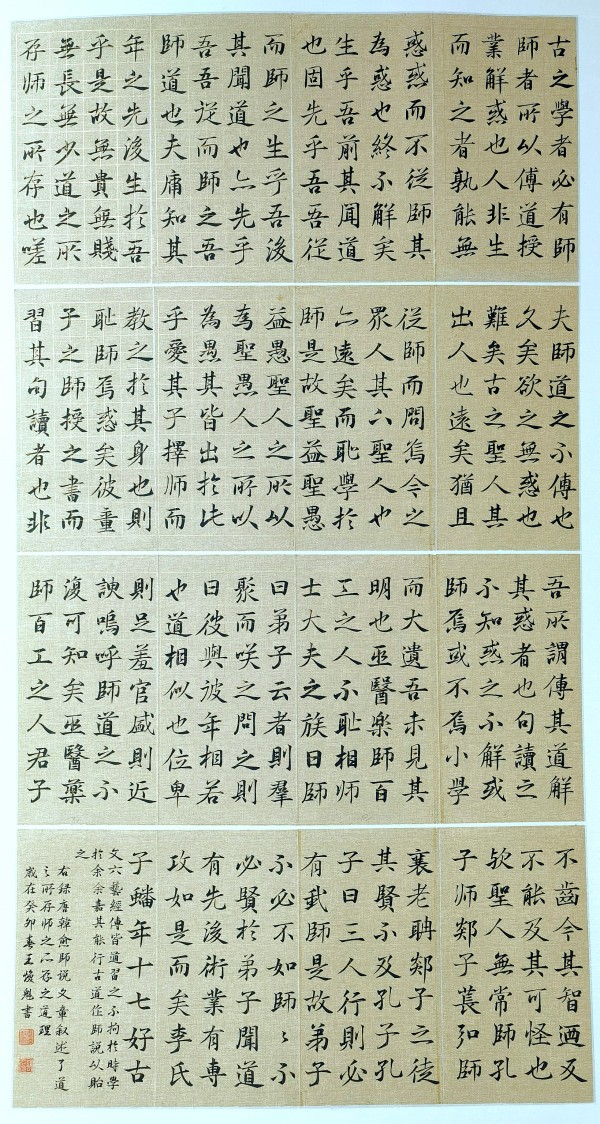 古之學者必有師
師者所以傳道授
業解惑也人非生
而知之者孰能無
惑惑而不從師其
為惑也終不解矣
生乎吾前其聞道
也固先乎吾吾從
而師之生乎吾後
其聞道也亦先乎
吾吾從而師之吾
師道也夫庸知其
年之先後生於吾
乎是故無貴無賤
無長無少道之所
存师之所存也嗟
夫師道之不傳也
久矣欲之無惑也
難矣古之聖人其
出人也遠矣猶且
從師而問焉今之
眾人其下聖人也
亦遠矣而恥學於
師是故聖益聖愚
益愚聖人之所以
為聖愚人之所以
為愚其皆出於此
乎愛其子擇師而
教之於其身也則
恥師焉惑矣彼童
子之師授之書而
習其句讀者也非
吾所謂傳其道解
其惑者也句讀之
不知惑之不解或
師焉或不焉小學
而大遺吾未見其
明也巫醫樂師百
工之人不恥相師
士大夫之族曰師
曰弟子云者則羣
聚而笑之問之則
曰彼與彼年相若
也道相似也位卑
則足羞官盛則近
諛嗚呼師道之不
復可知矣巫醫藥
師百工之人君子
不齒今其智迺反
不能及其可怪也
歟聖人無常師孔
子師郯子萇弘師
襄老聃郯子之徒
其賢不及孔子孔
子曰三人行則必
有我師是故弟子
不必不如師〻不
必賢於弟子聞道
有先後術業有專
攻如是而矣李氏
子蟠年十七好古
文六藝經傳皆通習之不拘於時學
於余余嘉其能行古道作師說以貽
之
右録唐韓愈師说文章叙述了道
之所存師之所存之道理
歲在癸卯春王俊魁書